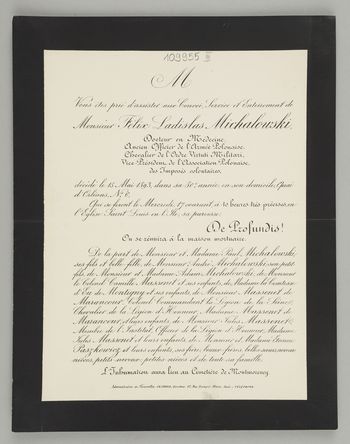 109955
M
Vous êtes prié d'assister aux Convoi, Service et Enterrement de
Monsieur Félix Ladislas Michalowski,
Docteur en Médecine,
Ancien Officier de l'Armée Polonaise,
Chevalier de l'Ordre Virtuti Militari,
Vice-Président de l'Association Polonaise,
des Imposés volontaires,
décédé le 15 Mai 1893, dans sa 80e année, en son domicile, Quai
d'Orléans, No 6,
Qui se feront le Mercredi 17 courant, à 10 heures très précises, en
l'Eglise Saint Louis en l'Ile, sa paroisse.
De Profundis!
On se réunira à la maison mortuaire.
De la part de Monsieur et Madame Paul Michalowski,
ses fils et belle-fille, de Monsieur André Michalowski, son petit
fils, de Monsieur et Madame Adam Michalowski, de Monsieur
le Colonel Camille Massenet et ses enfants, de Madame la Comtesse
de Montigny et ses enfants, de Monsieur Massenet de
Marancour, Colonel Commandant la Légion de la Seine,
Chevalier de la Légion d'Honneur, Madame Massenet de
Marancour, et leurs enfants, de Monsieur Jules Massenet,
Membre de l'Institut, Officier de la Légion d'Honneur, Madame
Jules Massenet et leurs enfants, de Monsieur et Madame
Paszkowicz et leurs enfants, ses frère, beaux-frères, belles-sœurs, neveux
nièces, petits-neveux, petites-nièces et de toute sa famille.
L'Inhumation aura lieu au Cimetière de Montmorency.